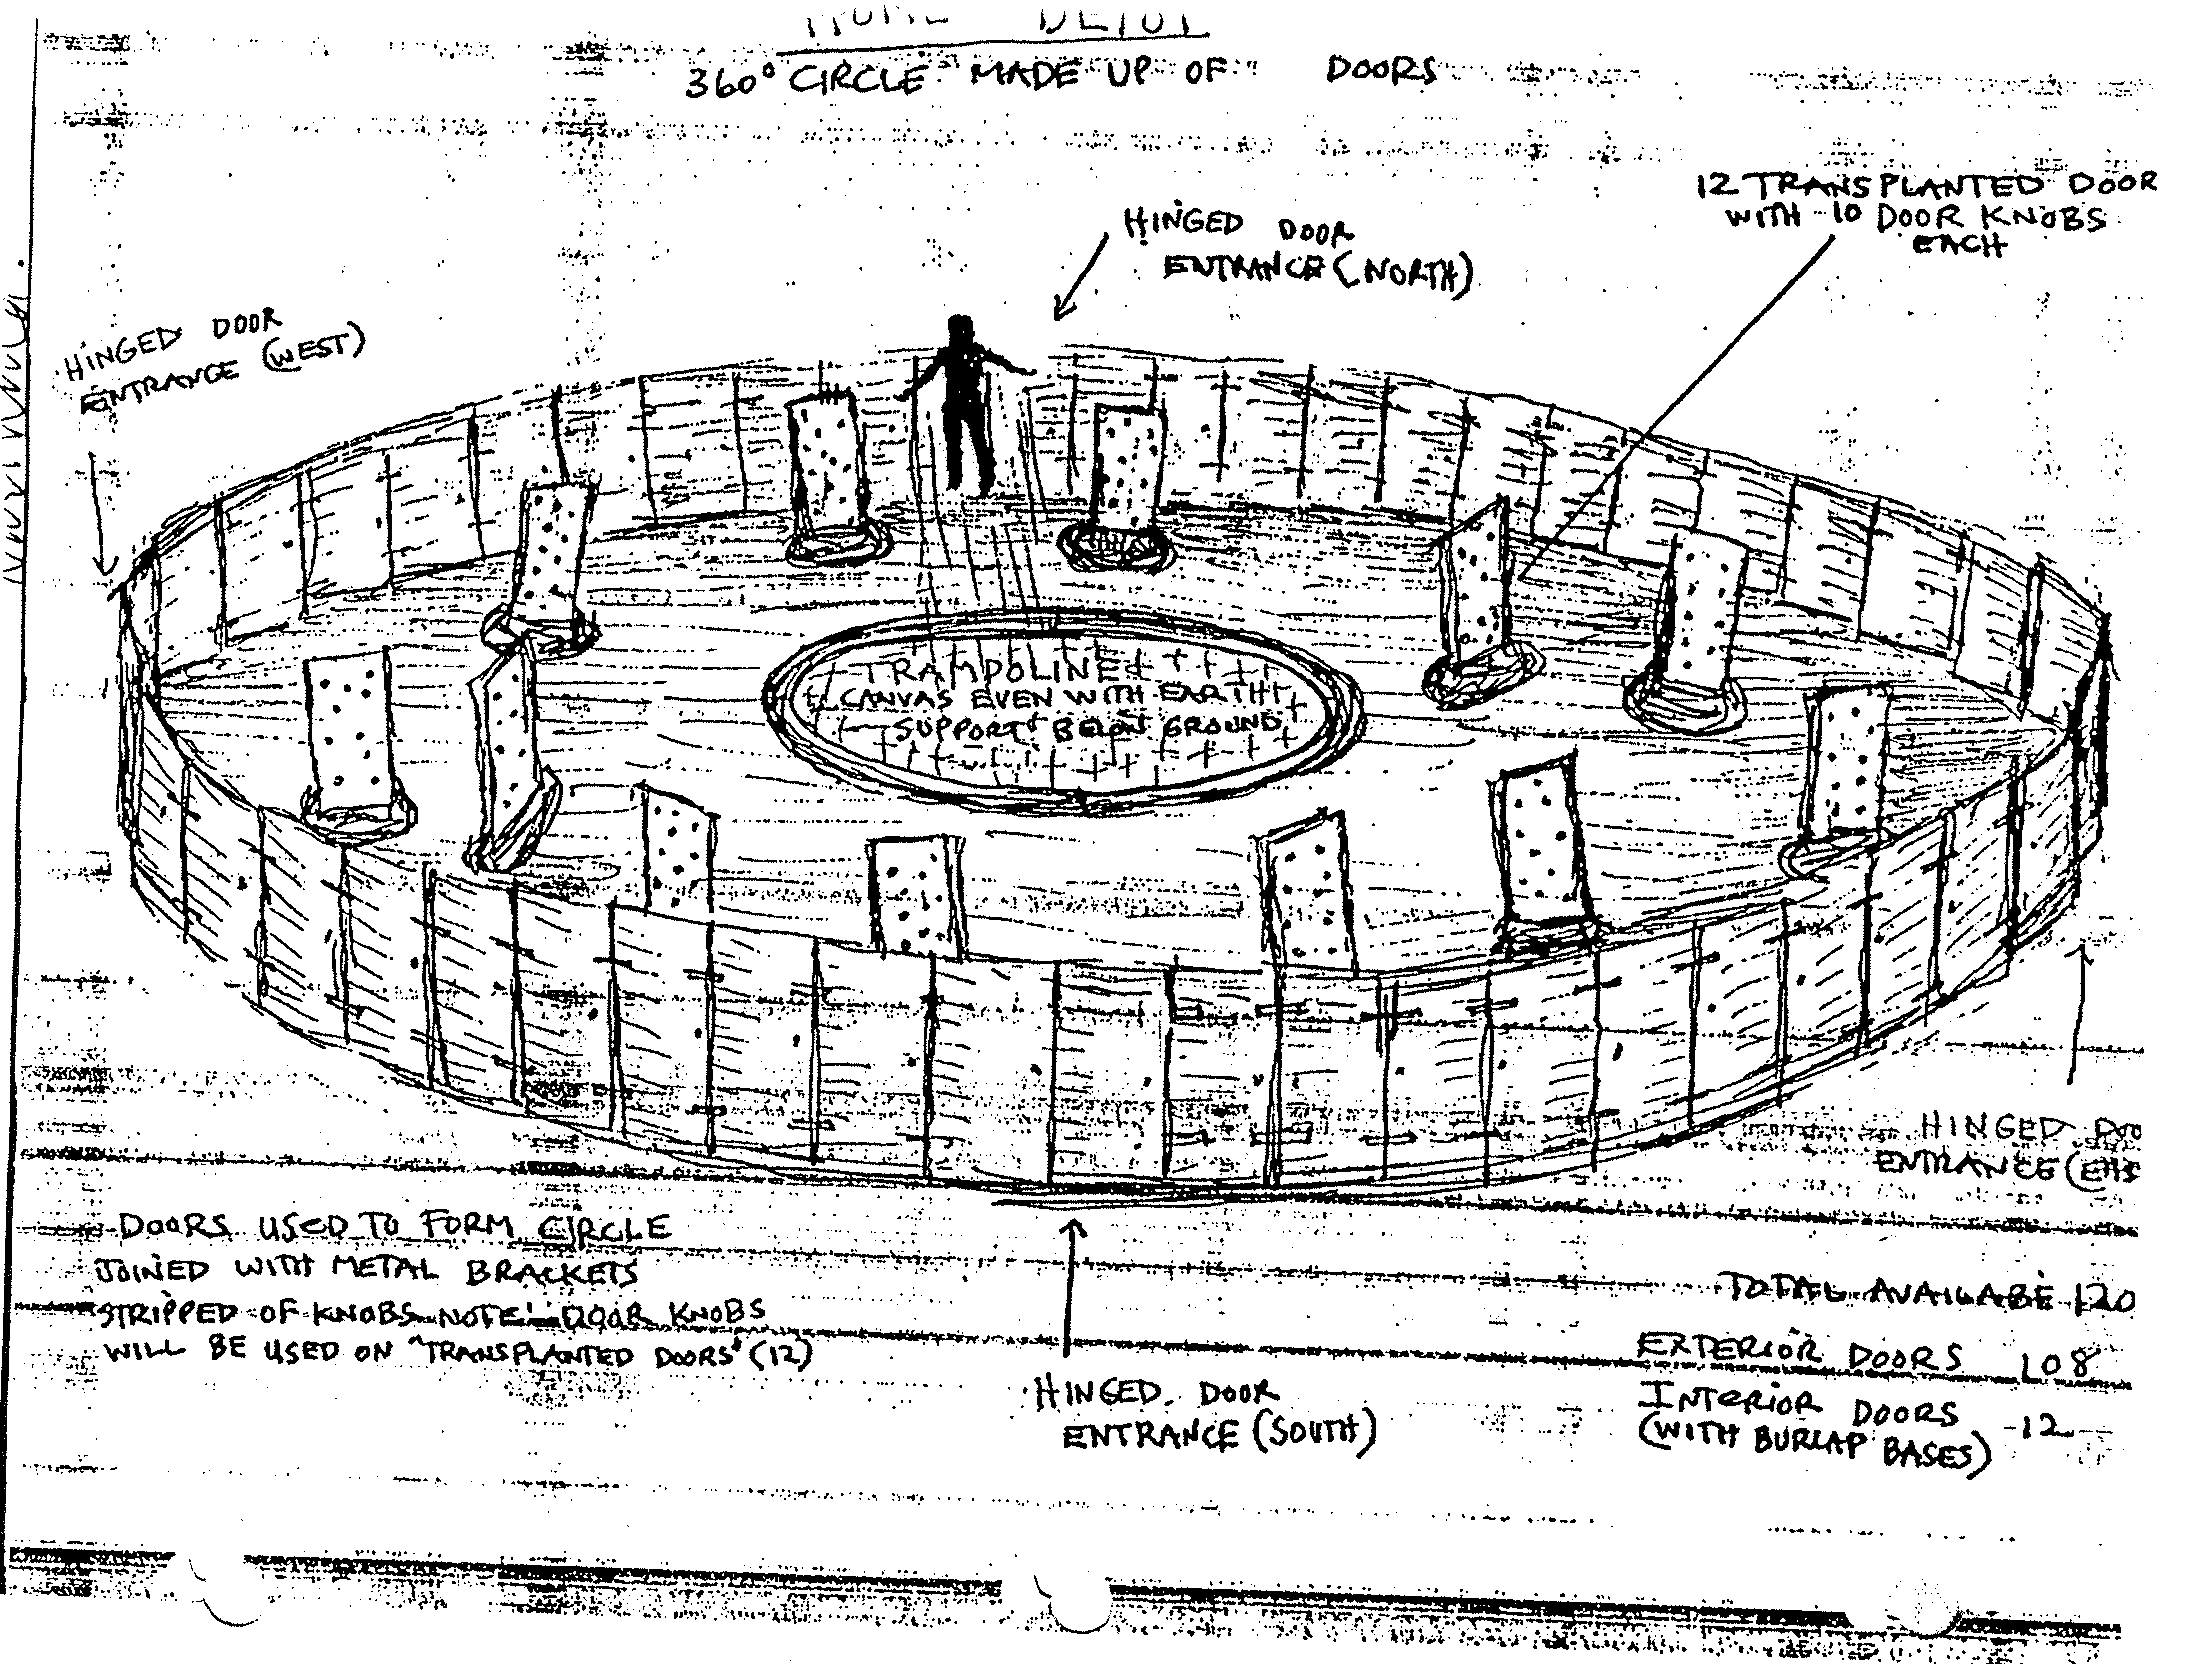 HOME DEPOT
360° CIRCLE MADE UP OF DOORS
12 TRANSPLANTED DOOR
WITH 10 DOOR KNOBS
EACH
HINGED DOOR
ENTRANCE (NORTH)
HINGED DOOR
ENTRANCE (WEST)
TRAMPOLINE
CANVAS EVEN WITH EARTH
SUPPORT BELOW GROUND
HINGED DOO
ENTRANCE (EAS
DOORS USED TO FORM CIRCLE
JOINED WITH METAL BRACKETS
STRIPPED OF KNOBS NOTE: DOOR KNOBS
WILL BE USED ON "TRANSPLANTED DOORS" (12)
HINGED DOOR
ENTRANCE (SOUTH)
TOTAL AVAILABE 120
EXTERIOR DOORS 108
INTERIOR DOORS 12
(WITH BURLAP BASES)